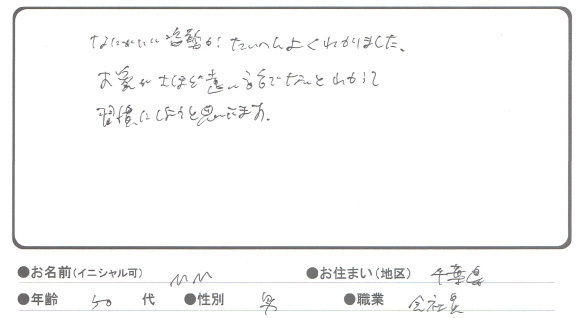 姿勢が たいへんよくわかりました。
お金がさほど遠い話でないとわかって
習慣にしようと思います。
●お名前(イニシャル可) M M ●お住まい(地区) 千葉県
●年齢 50 代 ●性別 男 ●職業 会社員